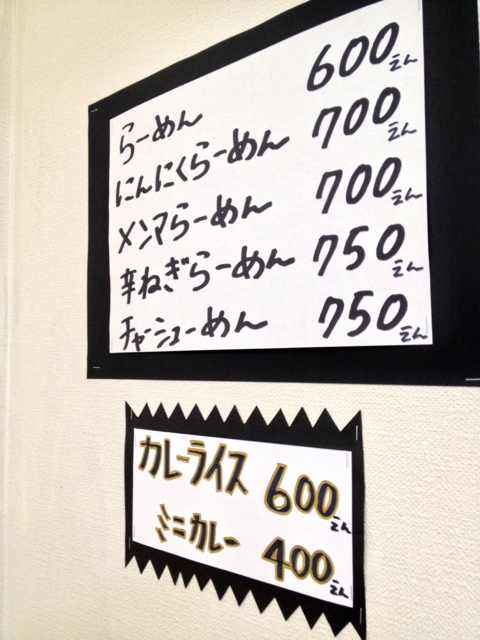 らーめん 600えん
にんにくらーめん 700えん
メンマらーめん 700えん
辛ねぎらーめん 750えん
チャーシューめん 750えん
カレーライス 600えん
ミニカレー 400えん